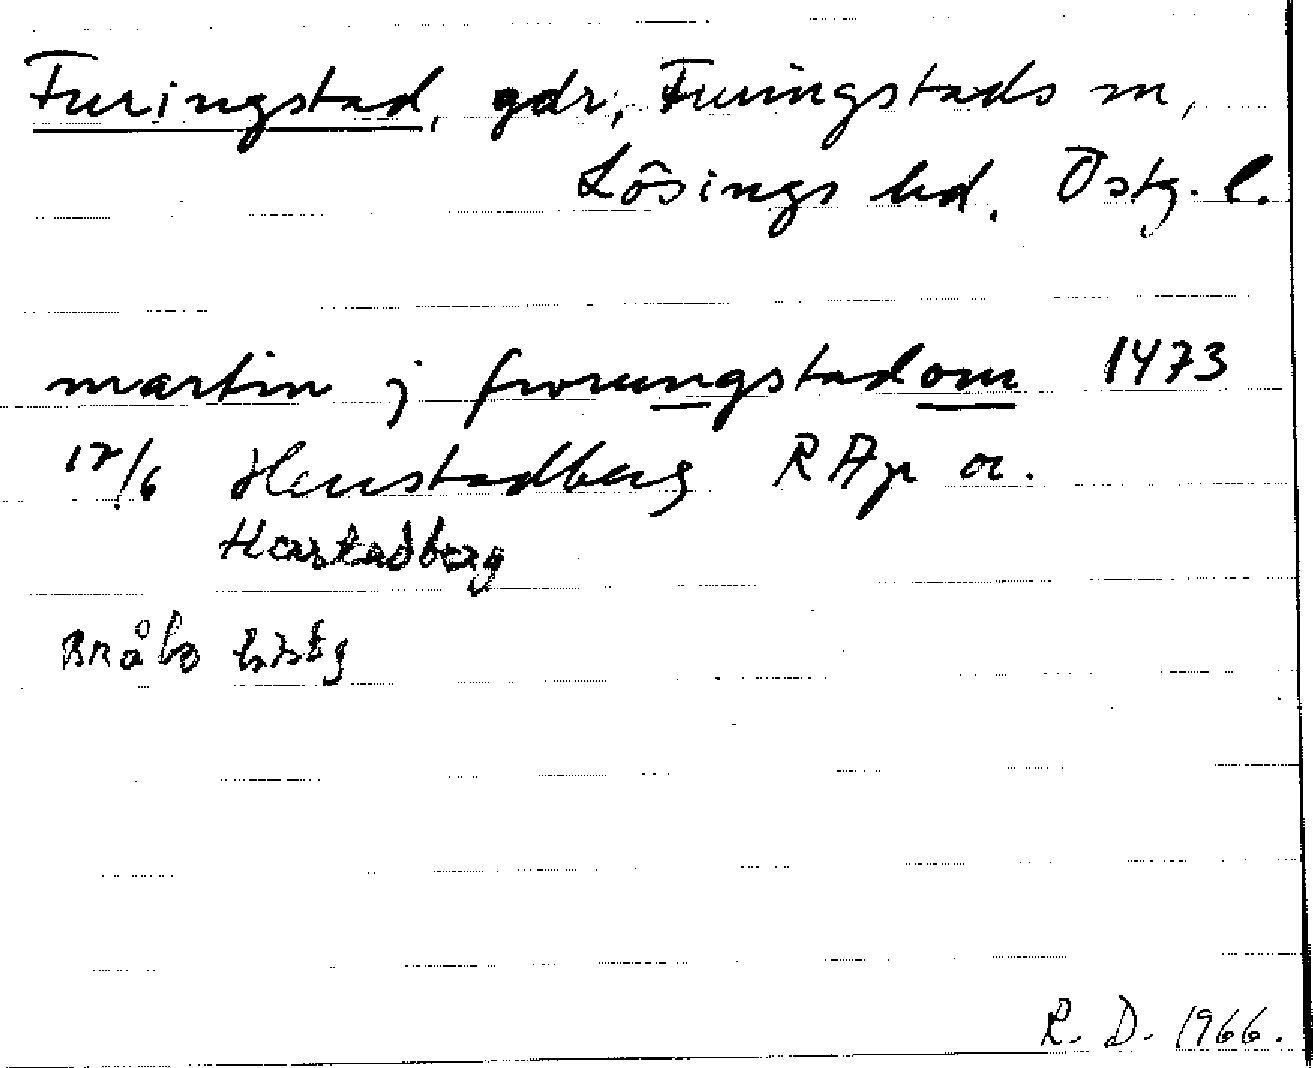 Furingstad, gdr, Furingstads sn,
Lösings hd. Östg. l.
martin j frorungstadom 1473
17/6 Herstadberg RAp or.
Herstadberg
Bråbo hstg
R. D. 1966.